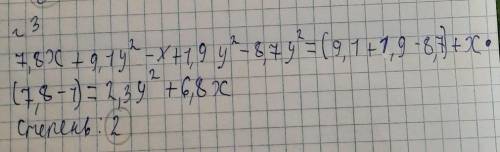 №3
7,8x + 9,1y² - x + 1,9y² - 8,7y² = (9,1 + 1,9 - 8,7) + x •
(7,8 - 1) = 2,3y² + 6,8x
степень: 2